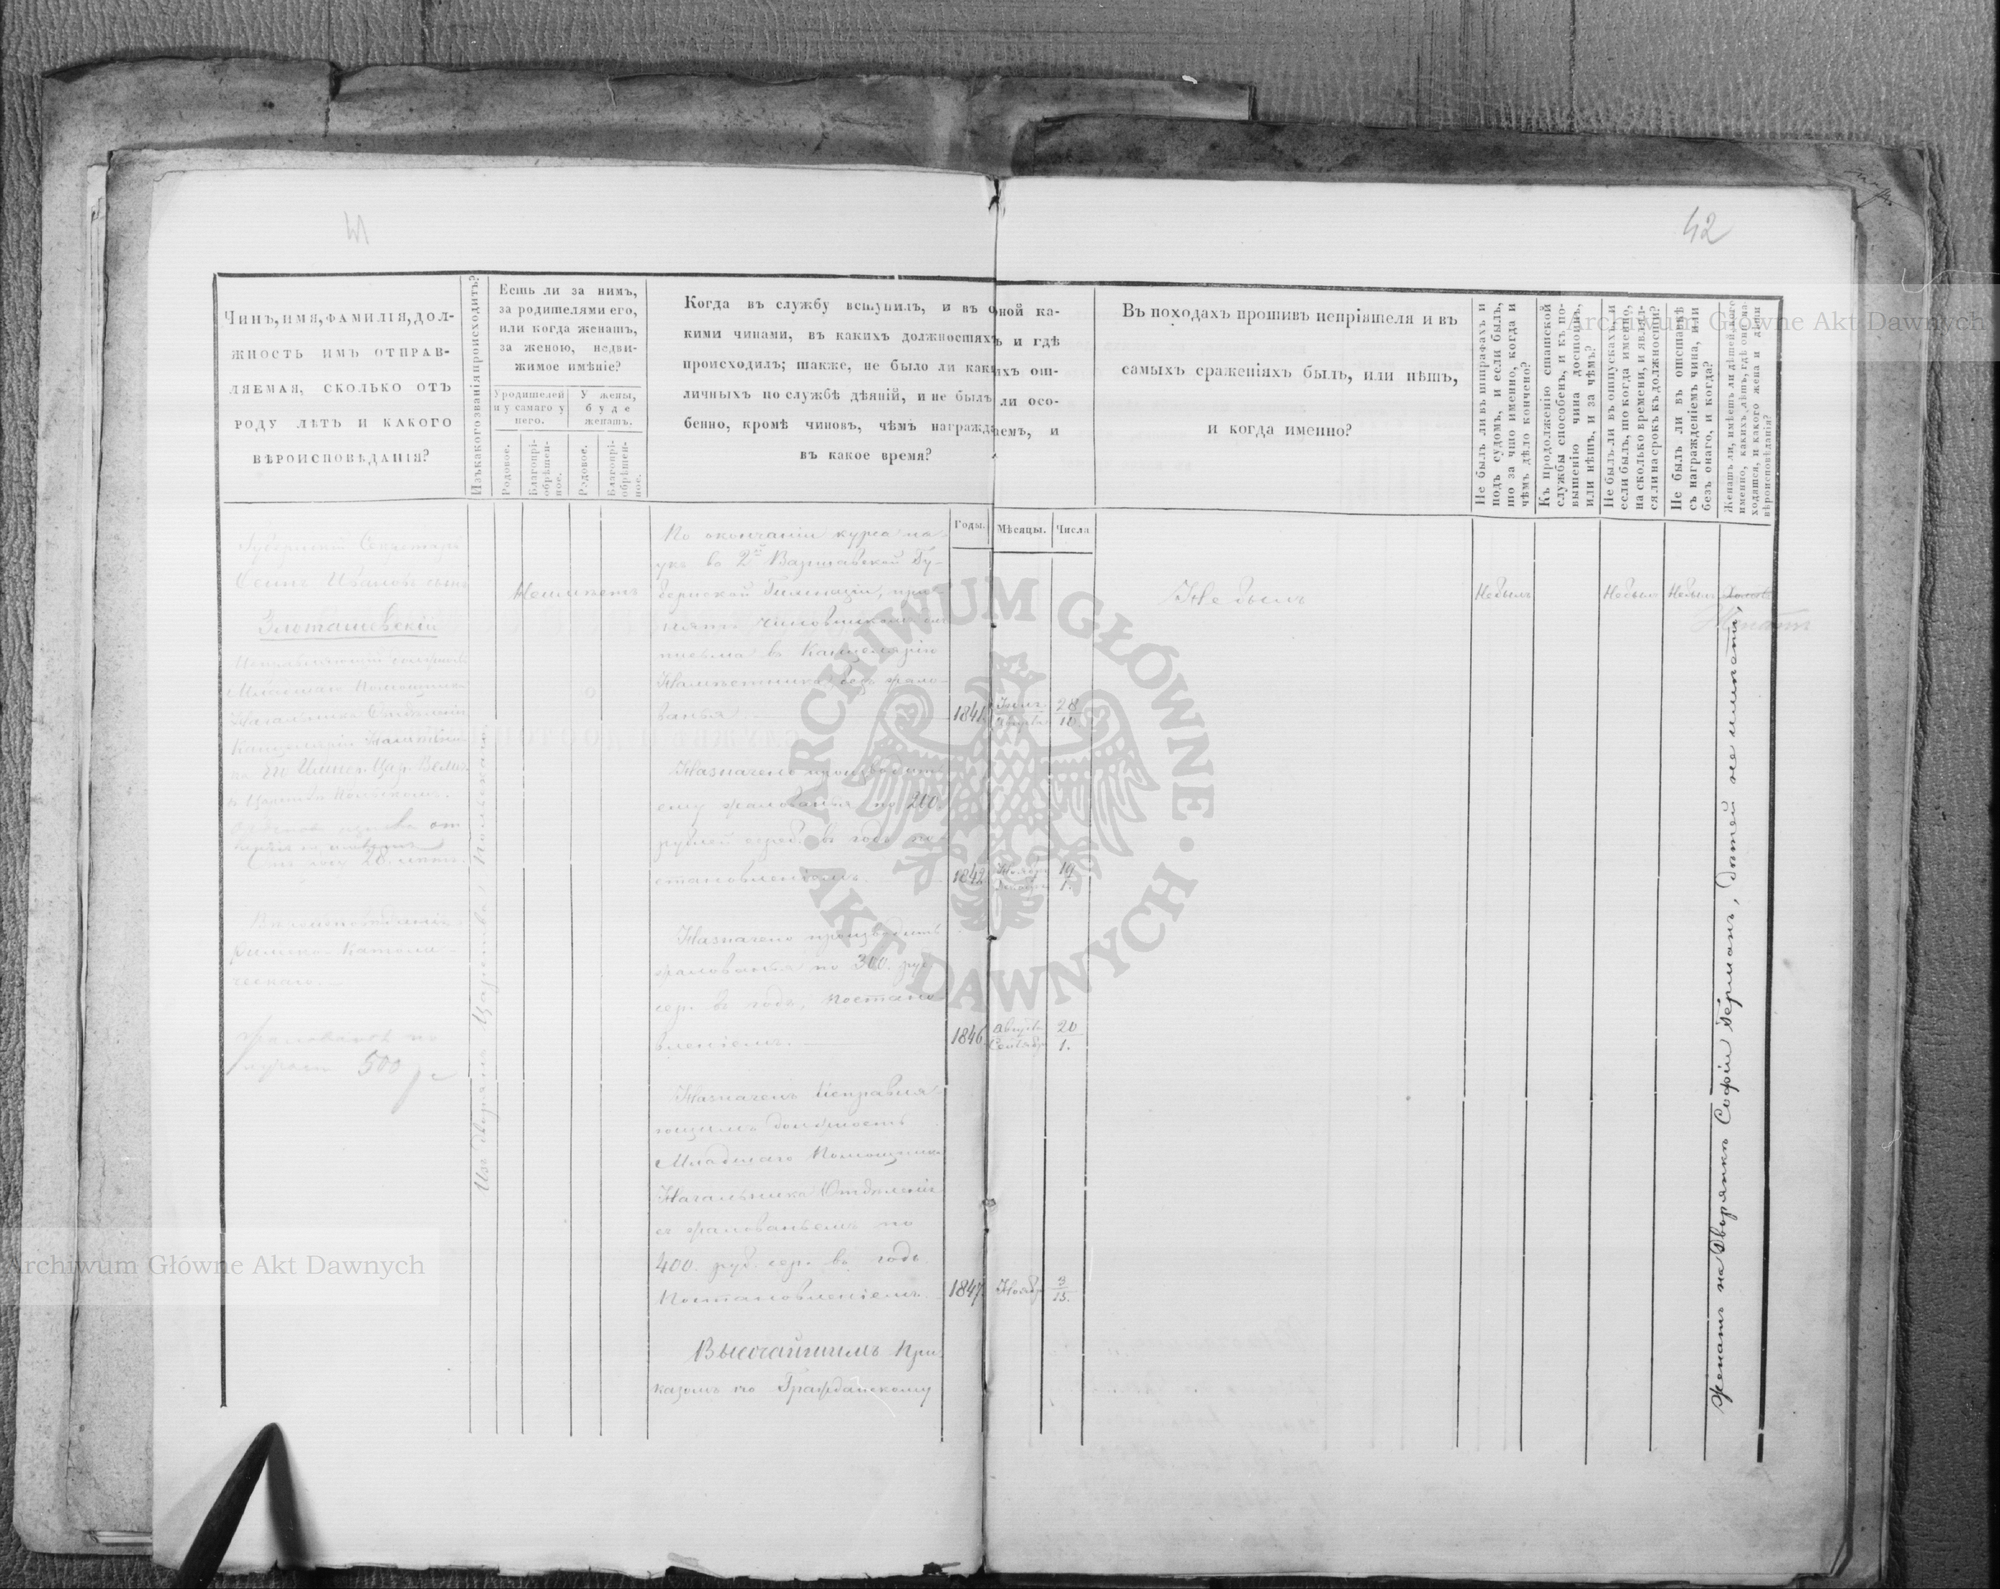 42
Чинъ, имя, фамилія, дол-
жность имъ отправ-
ляемая, сколько отъ
роду лѣтъ и какого
вѣроисповѣданія?
Изъ какого званія происходитъ?
Есть ли за нимъ,
за родителями его,
или когда женатъ,
за женою, недви-
жимое имѣніе?
У родителей
и у самаго у
него.
У жены,
буде
женатъ.
Родовое.
Благопрі-
обрѣтен-
ное.
Родовое.
Благопрі-
обрѣтен-
ное.
Когда въ службу вступилъ, и въ оной ка-
кими чинами, въ какихъ должностяхъ и гдѣ
происходилъ; также, не было ли какихъ от-
личныхъ по службѣ дѣяній, и не былъ ли осо-
бенно, кромѣ чиновъ, чѣмъ награждаемъ, и
въ какое время?
Годы.
Мѣсяцы.
Числа
Въ походахъ противъ непріятеля и въ
самыхъ сраженіяхъ былъ, или нѣтъ,
и когда именно?
Не былъ ли въ штрафахъ и
подъ судомъ, и если былъ,
то за что именно, когда и
чѣмъ дѣло кончено?
Къ продолженію статской
службы способенъ, и къ по-
вышенію чина достоинъ,
или нѣтъ, и за чѣмъ?
Не былъ ли въ отпускахъ, и
если былъ, то когда именно,
на сколько времени, и являл-
ся ли на срокъ къ должности?
Не былъ ли въ отставкѣ
съ награжденіемъ чина, или
безъ онаго, и когда?
Женатъ ли, имѣетъ ли дѣтей, кого
именно, какихъ лѣтъ, гдѣ они на-
ходятся, и какого жена и дѣти
вѣроисповѣданія?
Губернскій Секретарь
Осипъ Ивановъ сынъ
Злоташевскій
Исправляющій должность
Младшаго Помощника
Начальника Отдѣленія
Канцеляріи Намѣстни-
ка Его Импер. Цар. Велич.
въ Царствѣ Польскомъ.
От роду 28 лѣтъ.
Вѣроисповѣданія
Римско Католи-
ческаго.
Жалованья по
лучаетъ 500 рс
Изъ дворянъ Царства Польскаго.
Неимѣетъ
По окончаніи курса на-
укъ во 2й Варшавской Гу-
бернской Гимназіи, при-
нятъ чиновникомъ для
письма въ Канцелярію
Намѣстника безъ жало-
ванья. 1841 Іюль 28
Августа
Назначено производить
ему жалованья по 200
рублей сереб. въ годъ по-
становленіемъ. 1842 19
1.
Назначено производить
жалованья по 300. руб
сер. въ годъ, Постано
вленіемъ. 1846 Августа 20
Сентябр 1.
Назначенъ Исправля
ющимъ должность
Младшаго Помощника
Начальника Отдѣленія
съ жалованьемъ по
400. руб. сер. въ годъ
Постановленіемъ. 1847 Ноябр 3
15.
Высочайшимъ При
казомъ по Гражданскому
Не былъ
Небылъ
Небылъ
Небылъ
Женатъ
Женатъ на Дворянкѣ Софіи Германъ, дѣтей не имѣетъ,
ARCHIWUM GŁÓWNE · AKT DAWNYCH ·
Archiwum Główne Akt Dawnych
Archiwum Główne Akt Dawnych